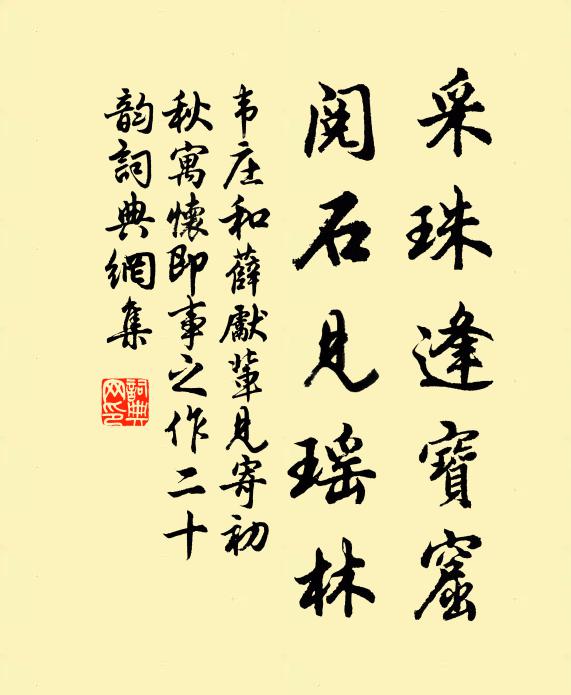 采珠逢寶窟
閱石見瑶林
韦庄和薛獻輩見寄初
秋寓懷即事之作二十
韵詞典網集
詞典网印